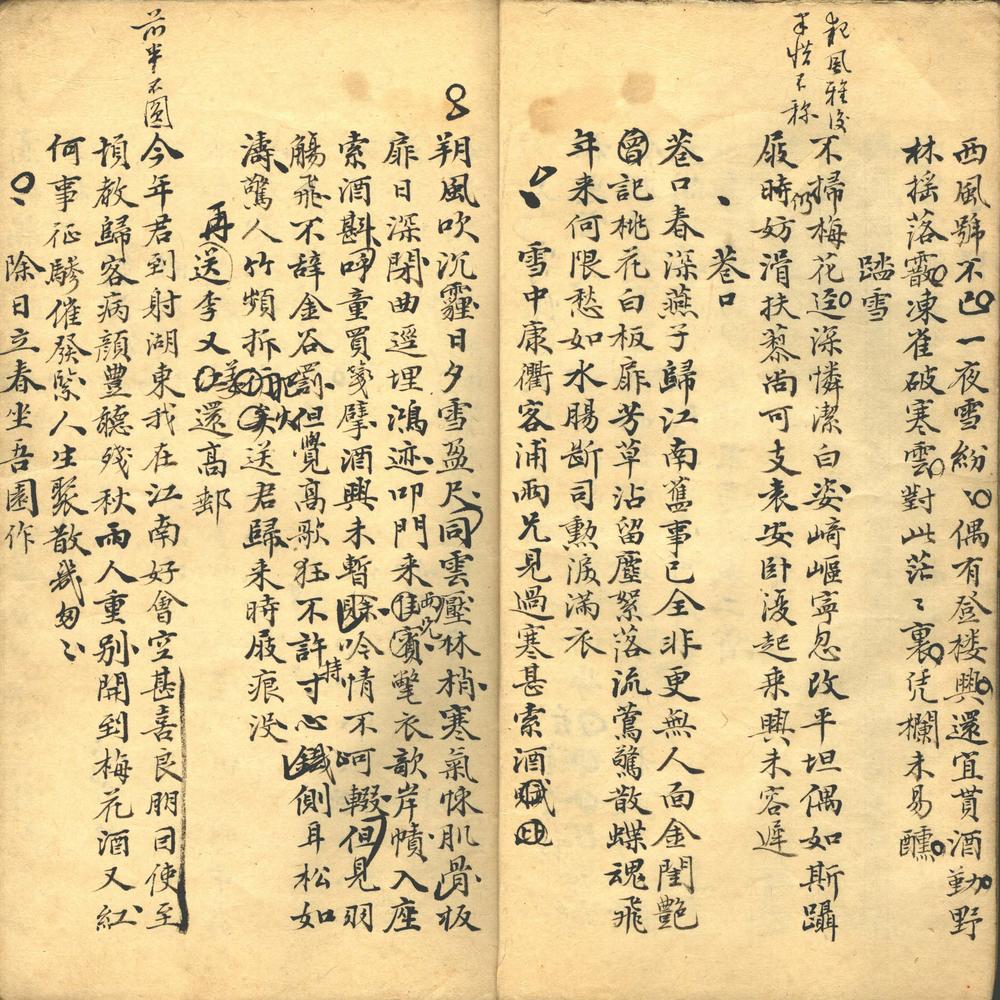 西風號不已一夜雪紛〻偶有登楼興還宜貰酒勤野
林揺落靄凍雀破寒雲對此茫〻裏凭欄未易醺
踏雪
起風雅後
半惜不称
不掃梅花逕深憐潔白姿崎嶇寧忍改平坦偶如斯躡
屐時妨滑扶藜尚可支袁安卧後起乘興未容遲
仍
巷口
巷口春深燕子歸江南舊事已全非更無人面金閨艷
曾記桃花白板扉芳草沾留塵絮落流鶯驚散蝶魂飛
年来何限愁如水腸断司勲淚滿衣
雪中康衢客浦兩兄見過寒甚索酒賦此
朔風吹沉霾日夕雪盈尺同雲壓林梢寒氣悚肌骨板
扉日深閉曲逕埋鴻迹叩門来佳賓氅衣歆岸幘入座
兩兄
索酒斟呼童買箋擘酒興未暫除吟情不可輟但見羽
觴飛不辞金谷罰但覺高歌狂不許寸心鐵側耳松如
持
濤驚人竹頻拆送君歸来時屐痕没
再送李又還高郵
前半不圓
今年君到射湖東我在江南好會空甚喜良朋同使至
頃教歸客病顔豐聽殘秋雨人重别開到梅花酒又紅
何事征驂催發緊人生聚散義匆〻
除日立春坐吾園作